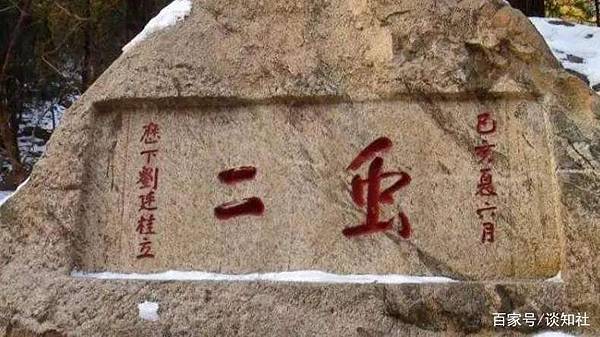 己亥夏六月
虫二
歷下劉廷桂立
百家号/谈知社